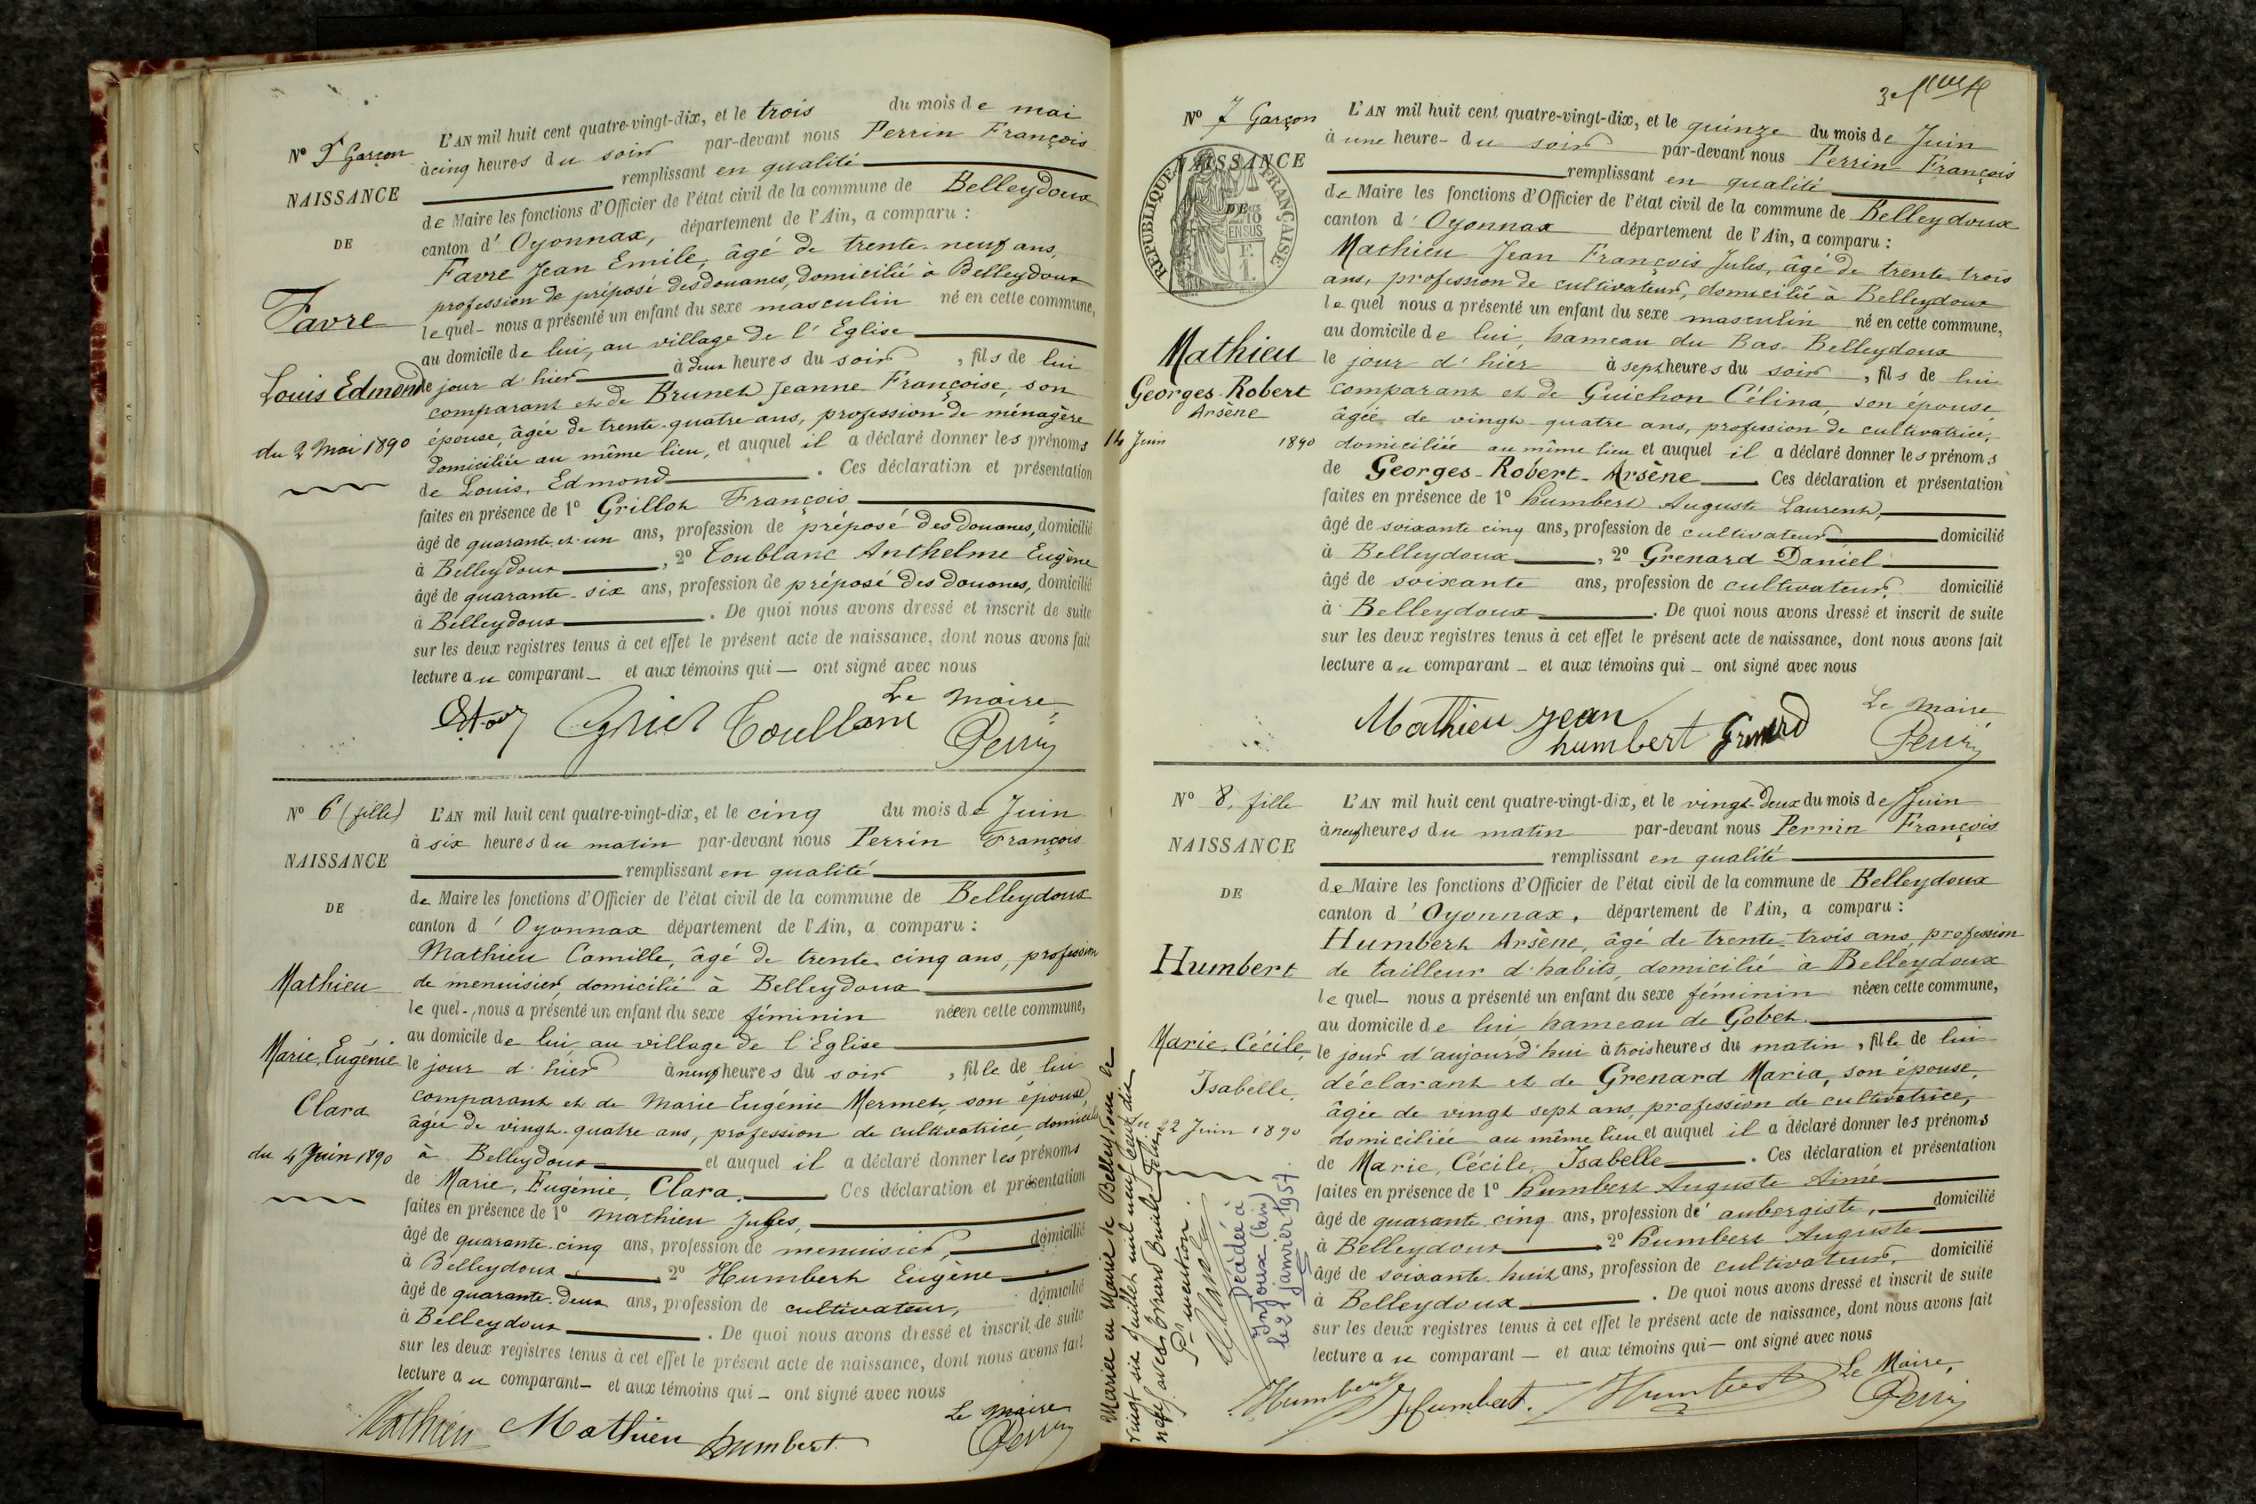 Nº 5 Garçon
NAISSANCE
DE
Favre
Louis Edmond
du 2 Mai 1890
L'AN mil huit cent quatre-vingt-dix, et le trois du mois de mai
à cinq heures du soir par-devant nous Perrin François
remplissant en qualité
de Maire les fonctions d'Officier de l'état civil de la commune de Belleydoux
canton d'Oyonnax, département de l'Ain, a comparu :
Favre Jean Emile, âgé de trente-neuf ans,
profession de préposé des douanes, domicilié à Belleydoux
lequel nous a présenté un enfant du sexe masculin né en cette commune,
au domicile de lui, au village de l'Eglise
le jour d'hier à deux heures du soir, fils de lui
comparant et de Brunet Jeanne Françoise, son
épouse, âgée de trente-quatre ans, profession de ménagère
domiciliée au même lieu, et auquel il a déclaré donner les prénoms
de Louis, Edmond. Ces déclaration et présentation
faites en présence de 1º Grillot François
âgé de quarante et un ans, profession de préposé des douanes, domicilié
à Belleydoux, 2º Toublanc Anthelme Eugène
âgé de quarante-six ans, profession de préposé des douanes, domicilié
à Belleydoux. De quoi nous avons dressé et inscrit de suite
sur les deux registres tenus à cet effet le présent acte de naissance, dont nous avons fait
lecture au comparant et aux témoins qui ont signé avec nous
Le Maire,
Perrin
Nº 6 (fille)
NAISSANCE
DE
Mathieu
Marie, Eugénie
Clara
du 4 Juin 1890
L'AN mil huit cent quatre-vingt-dix, et le cinq du mois de Juin
à six heures du matin par-devant nous Perrin François
remplissant en qualité
de Maire les fonctions d'Officier de l'état civil de la commune de Belleydoux
canton d'Oyonnax département de l'Ain, a comparu :
Mathieu Camille, âgé de trente-cinq ans, profession
de menuisier, domicilié à Belleydoux
lequel nous a présenté un enfant du sexe féminin née en cette commune,
au domicile de lui au village de l'Eglise
le jour d'hier à neuf heures du soir, fille de lui
comparant et de Marie Eugénie Mermet, son épouse,
âgée de vingt-quatre ans, profession de cultivatrice, domiciliée
à Belleydoux et auquel il a déclaré donner les prénoms
de Marie, Eugénie, Clara. Ces déclaration et présentation
faites en présence de 1º Mathieu Jules,
âgé de quarante-cinq ans, profession de menuisier, domicilié
à Belleydoux, 2º Humbert Eugène
âgé de quarante-deux ans, profession de cultivateur, domicilié
à Belleydoux. De quoi nous avons dressé et inscrit de suite
sur les deux registres tenus à cet effet le présent acte de naissance, dont nous avons fait
lecture au comparant et aux témoins qui ont signé avec nous
Le Maire
Mathieu Mathieu humbert Perrin
Nº 7 Garçon
NAISSANCE
DE
RÉPUBLIQUE FRANÇAISE
Mathieu
Georges-Robert
Arsène
14 Juin 1890
L'AN mil huit cent quatre-vingt-dix, et le quinze du mois de Juin
à une heure du soir par-devant nous Perrin François
remplissant en qualité
de Maire les fonctions d'Officier de l'état civil de la commune de Belleydoux
canton d'Oyonnax département de l'Ain, a comparu :
Mathieu Jean François Jules, âgé de trente-trois
ans, profession de cultivateur, domicilié à Belleydoux
lequel nous a présenté un enfant du sexe masculin né en cette commune,
au domicile de lui, hameau du Bas-Belleydoux
le jour d'hier à sept heures du soir, fils de lui
comparant et de Guichon Célina, son épouse,
âgée de vingt-quatre ans, profession de cultivatrice,
domiciliée au même lieu et auquel il a déclaré donner les prénoms
de Georges-Robert-Arsène. Ces déclaration et présentation
faites en présence de 1º humbert Auguste Laurent,
âgé de soixante cinq ans, profession de cultivateur domicilié
à Belleydoux, 2º Grenard Daniel
âgé de soixante ans, profession de cultivateur, domicilié
à Belleydoux. De quoi nous avons dressé et inscrit de suite
sur les deux registres tenus à cet effet le présent acte de naissance, dont nous avons fait
lecture au comparant et aux témoins qui ont signé avec nous
Le Maire
Mathieu jean
humbert Grenard Perrin
Nº 8, fille
NAISSANCE
DE
Humbert
Marie, Cécile,
Isabelle,
du 22 Juin 1890
L'AN mil huit cent quatre-vingt-dix, et le vingt-deux du mois de Juin
à neuf heures du matin par-devant nous Perrin François
remplissant en qualité
de Maire les fonctions d'Officier de l'état civil de la commune de Belleydoux
canton d'Oyonnax, département de l'Ain, a comparu :
Humbert Arsène, âgé de trente-trois ans, profession
de tailleur d'habits, domicilié à Belleydoux
lequel nous a présenté un enfant du sexe féminin née en cette commune,
au domicile de lui hameau de Gobet
le jour d'aujourd'hui à trois heures du matin, fille de lui
déclarant et de Grenard Maria, son épouse,
âgée de vingt sept ans, profession de cultivatrice,
domiciliée au même lieu et auquel il a déclaré donner les prénoms
de Marie, Cécile, Isabelle. Ces déclaration et présentation
faites en présence de 1º humbert Auguste Aimé
âgé de quarante-cinq ans, profession de aubergiste, domicilié
à Belleydoux, 2º humbert Auguste
âgé de soixante-huit ans, profession de cultivateur, domicilié
à Belleydoux. De quoi nous avons dressé et inscrit de suite
sur les deux registres tenus à cet effet le présent acte de naissance, dont nous avons fait
lecture au comparant et aux témoins qui ont signé avec nous
Le Maire,
Humbert Humbert Humbert Perrin
Mariée en Mairie de Belleydoux le
vingt six Juillet mil neuf cent dix
neuf avec
Pr mention.
Décédée à
(Ain)
le 21 janvier 1957.